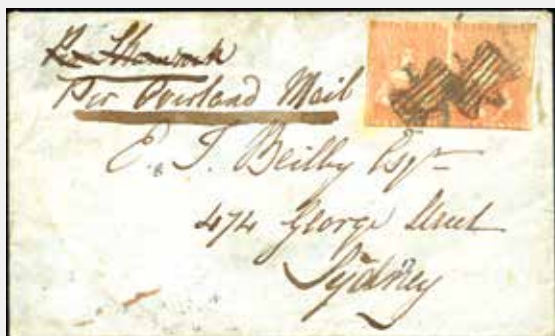 Per Shamrock
Per Overland Mail
E. T. Beilby Esqr
474 George Street
Sydney